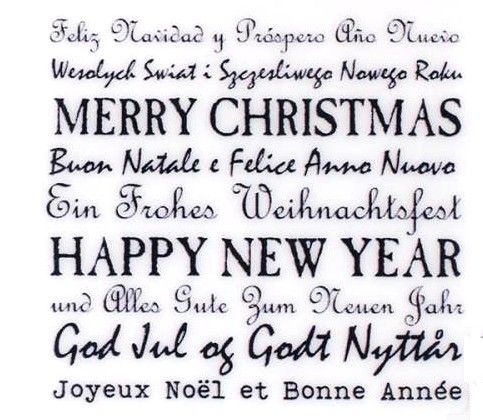 Feliz Navidad y Próspero Año Nuevo
Wesolych Swiat i Szczesliwego Nowego Roku
MERRY CHRISTMAS
Buon Natale e Felice Anno Nuovo
Ein Frohes Weihnachtsfest
HAPPY NEW YEAR
und Alles Gute Zum Neuen Jahr
God Jul og Godt Nyttår
Joyeux Noël et Bonne Année